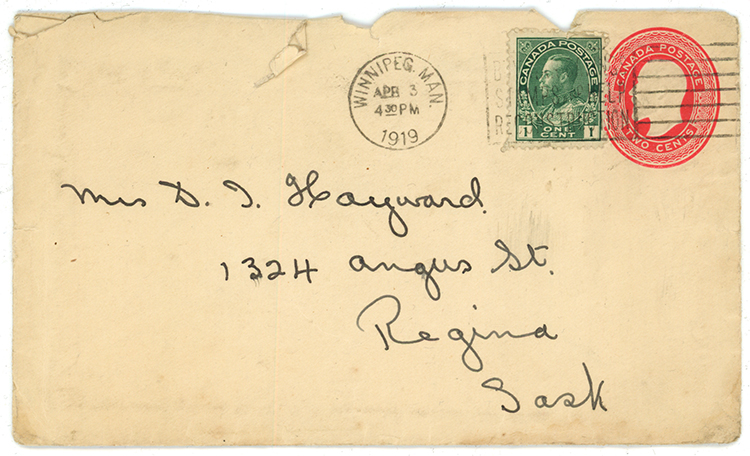 WINNIPEG. MAN.
APR 3
4 30 PM
1919
CANADA POSTAGE
1 ONE CENT 1
CANADA POSTAGE
TWO CENTS
Mrs D. J. Hayward.
1324 Angus St.
Regina
Sask